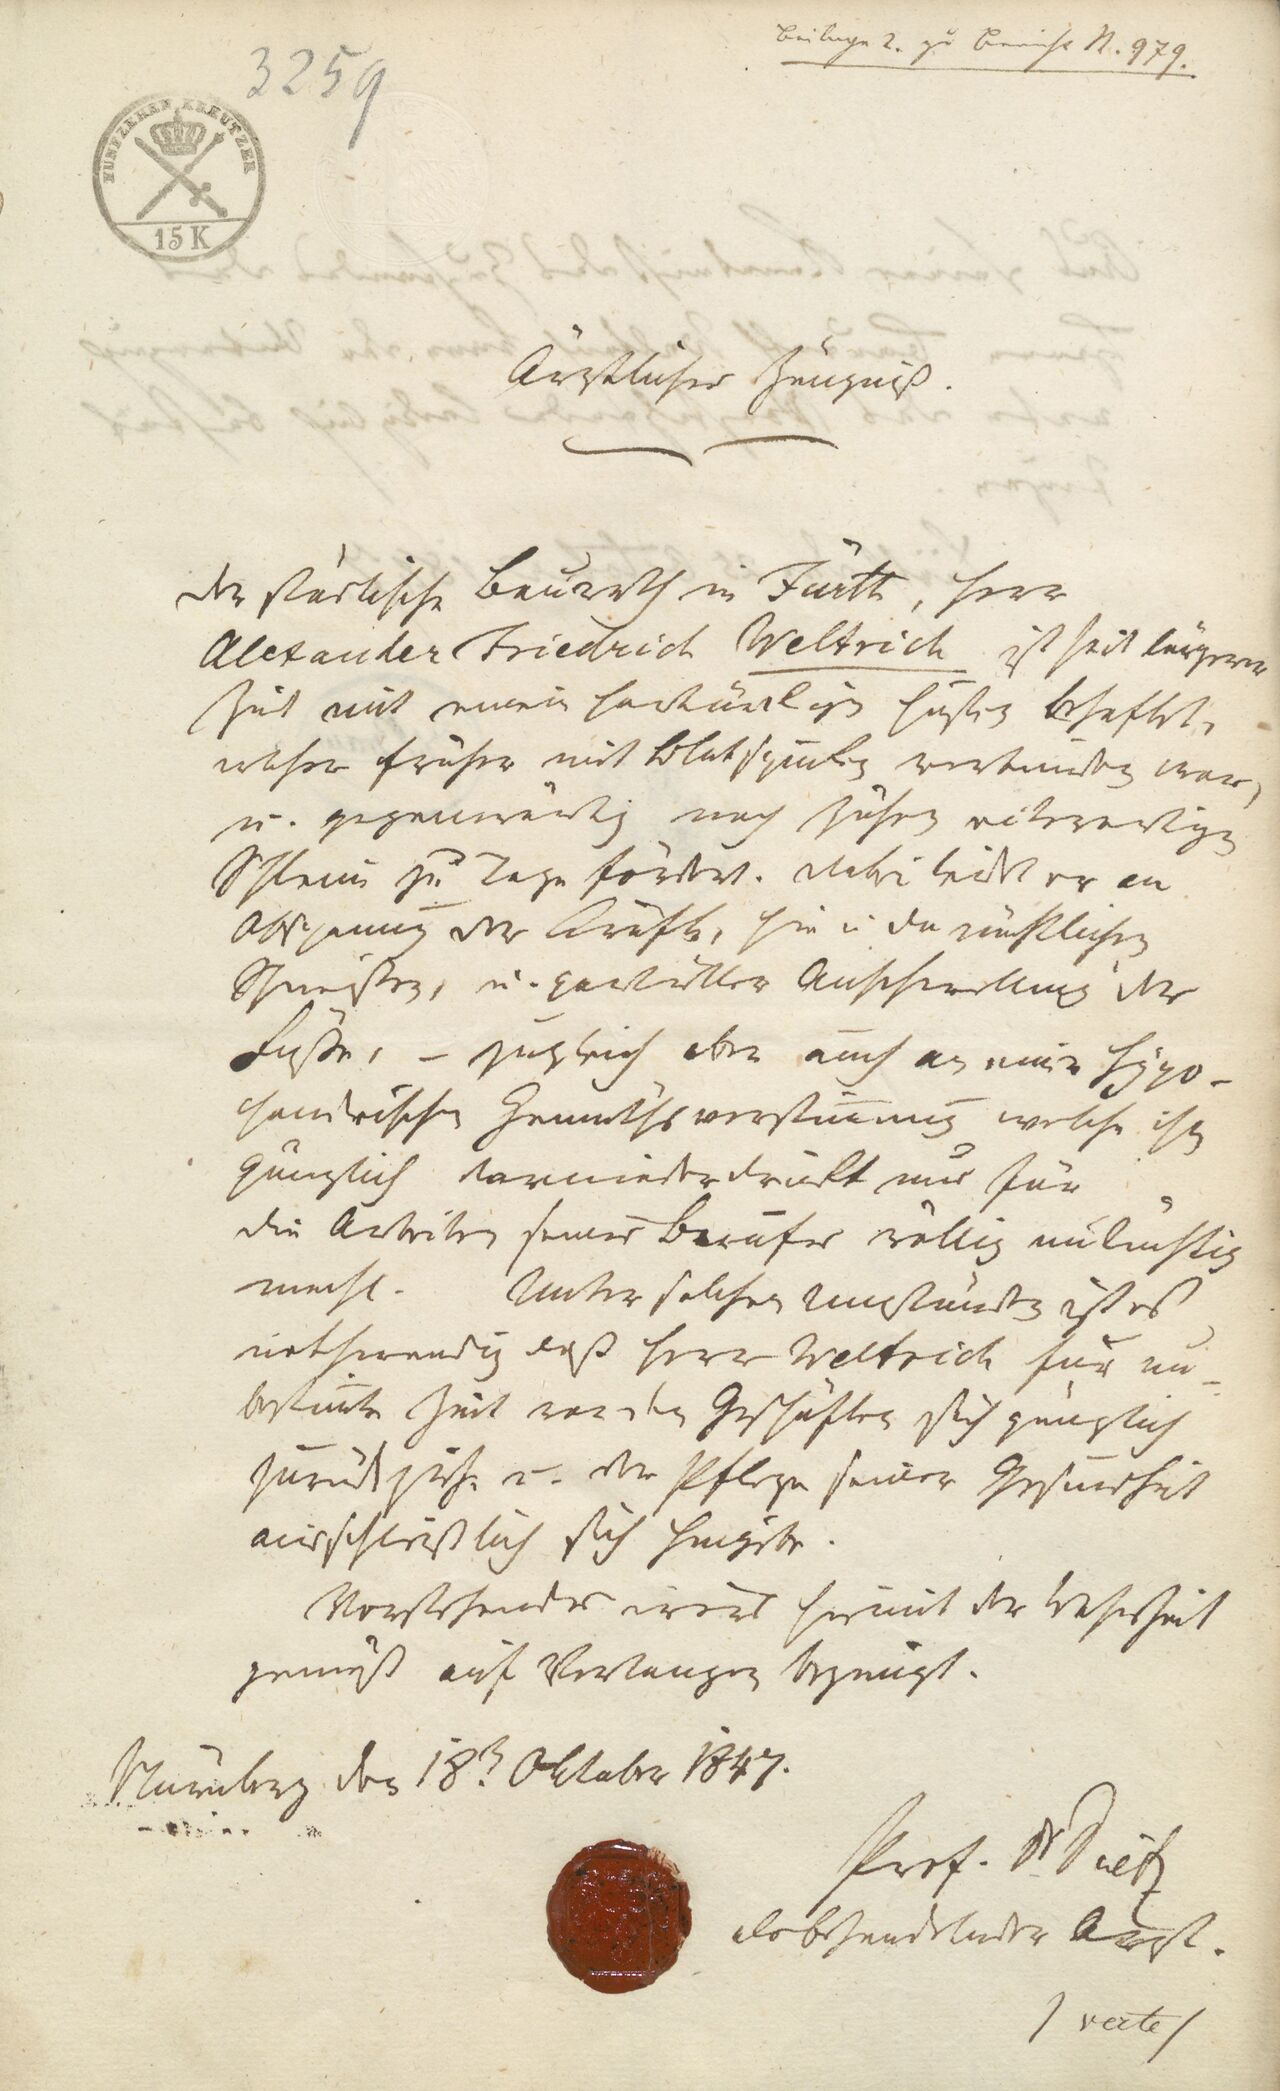 Beilage 2. zu Bericht N. 979.
3259
FUNFZEHEN KREUTZER
15 K
Ärztliches Zeugniß.
Der städtische Baurath in Fürth, Herr
Alexander Friedrich Weltrich ist seit längerer
Zeit mit einem hartnäckigen Husten behaftet,
welcher früher mit Blutspucken verbunden war,
u. gegenwärtig noch zähen eiterartigen
Schleim zu Tage fördert. Dabei leidet er an
Abspannung der Kräfte, hie u. da nächtlichen
Schweißen, u. partieller Anschwellung der
Füße, – zugleich aber auch an einer hypo-
chondrischen Gemüthsverstimmung welche ihn
gänzlich darniederdrückt und für
die Arbeiten seines Berufes völlig untüchtig
macht. Unter solchen Umständen ist es
nothwendig daß Herr Weltrich für un-
bestimmte Zeit von den Geschäften sich gänzlich
zurückziehe u. der Pflege seiner Gesundheit
ausschließlich sich hingebe.
Vorstehendes wird hiemit der Wahrheit
gemäß auf Verlangen bezeugt.
Nürnberg den 18t. Oktober 1847.
Prof. Dr Dietz
als behandelnder Arzt.
/ verte /